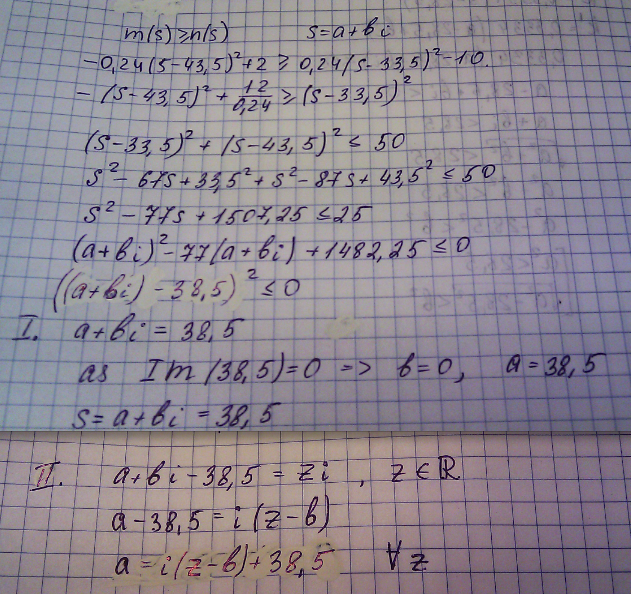 m(s)≥n(s) s=a+bi
-0,24(s-43,5)²+2 ≥ 0,24(s-33,5)²-10.
-(s-43,5)²+12/0,24≥(s-33,5)²
(s-33,5)²+(s-43,5)²≤50
s²-67s+33,5²+s²-87s+43,5²≤50
s²-77s+1507,25≤25
(a+bi)²-77(a+bi)+1482,25≤0
((a+bi)-38,5)²≤0
I. a+bi=38,5
as Im(38,5)=0 => b=0, a=38,5
s=a+bi=38,5
II. a+bi-38,5=zi, z∈ℝ
a-38,5=i(z-b)
a=i(z-b)+38,5 ∀z